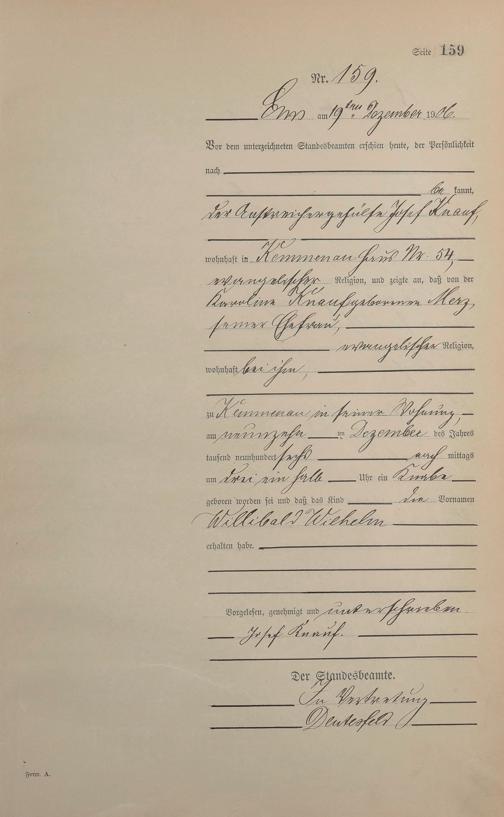 Seite 159
Nr. 159.
Ems am 19ten Dezember 1906.
Vor dem unterzeichneten Standesbeamten erschien heute, der Persönlichkeit
nach
be kannt,
der Anstreichergehülfe Josef Knauf,
wohnhaft in Kemmenau Haus Nr. 54,
evangelischer Religion, und zeigte an, daß von der
Karoline Knauf geborenen Merz,
seiner Ehefrau,
evangelischer Religion,
wohnhaft bei ihm,
zu Kemmenau in seiner Wohnung,
am neunzehn ten Dezember des Jahres
tausend neunhundert sechs nach mittags
um drei ein halb Uhr ein Knabe
geboren worden sei und daß das Kind die Vornamen
Willibald Wilhelm
erhalten habe.
Vorgelesen, genehmigt und unterschrieben
Josef Knauf.
Der Standesbeamte.
In Vertretung
Form. A.